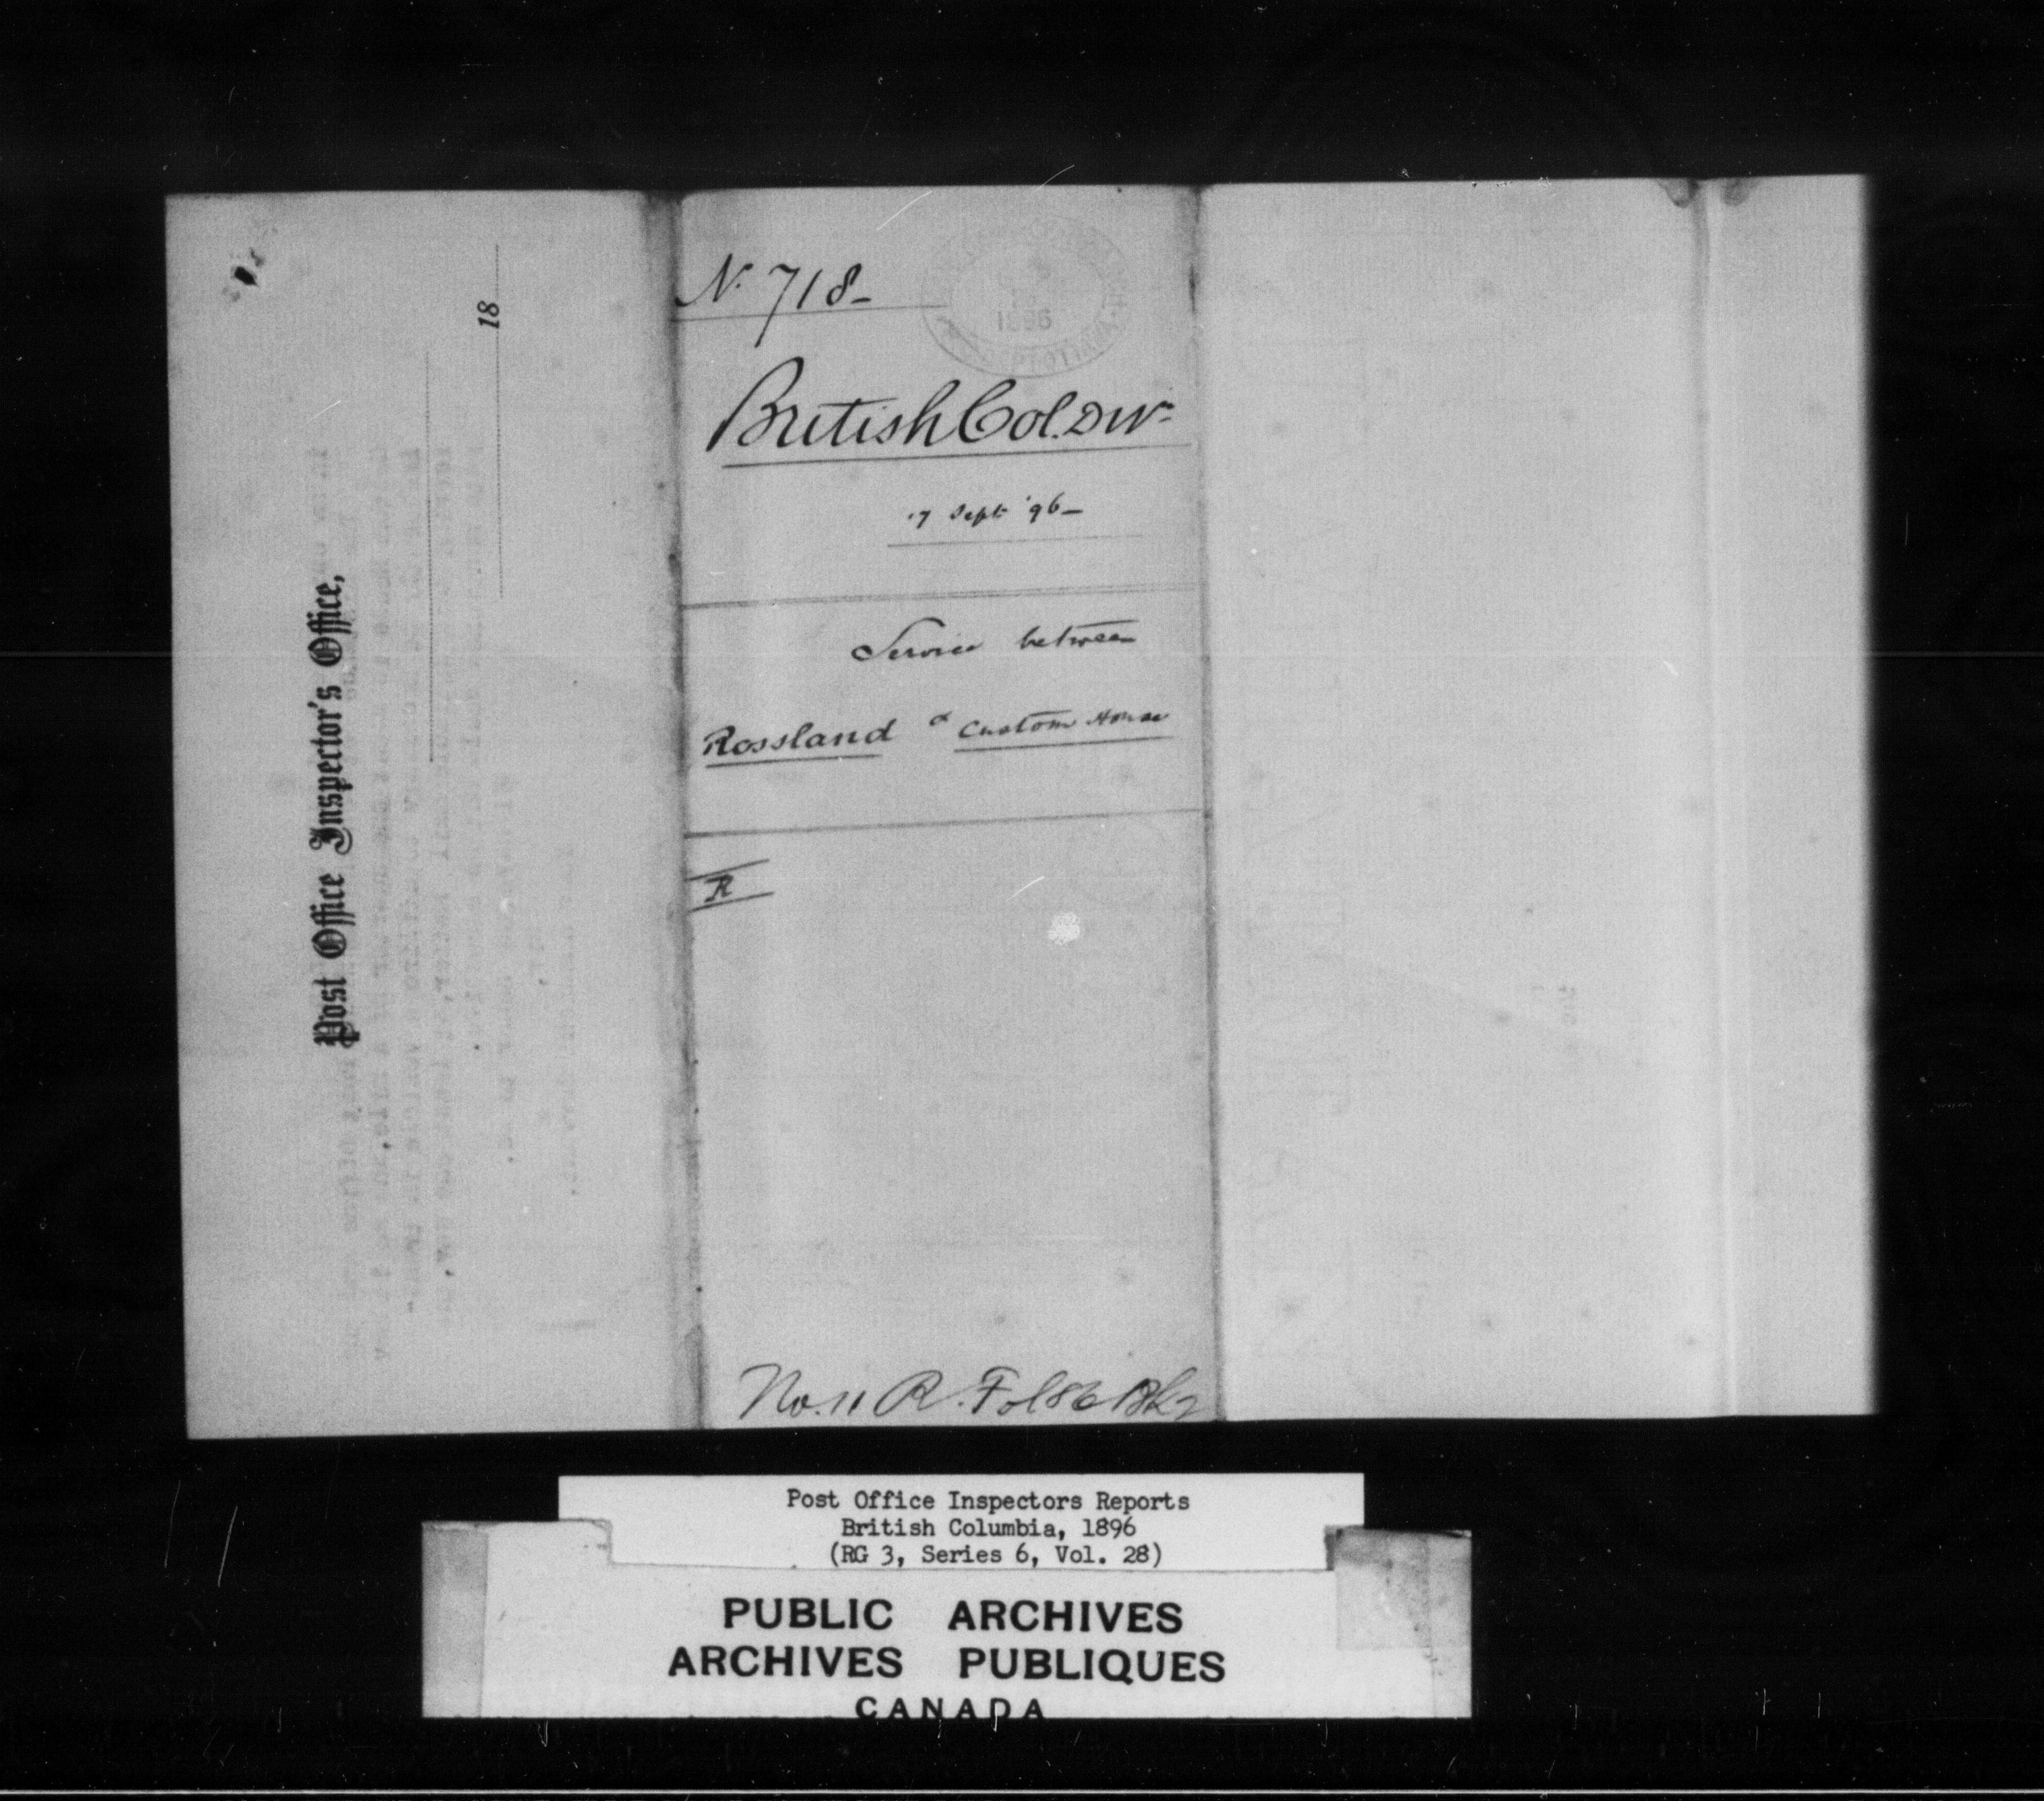 Post Office Inspector's Office,
18
N. 718-
1896
British Col. Dn.
17 Sept '96-
Service between
Rossland & Custom House
R
No. 11 R. Fol 86 Bk 2
Post Office Inspectors Reports
British Columbia, 1896
(RG 3, Series 6, Vol. 28)
PUBLIC ARCHIVES
ARCHIVES PUBLIQUES
CANADA